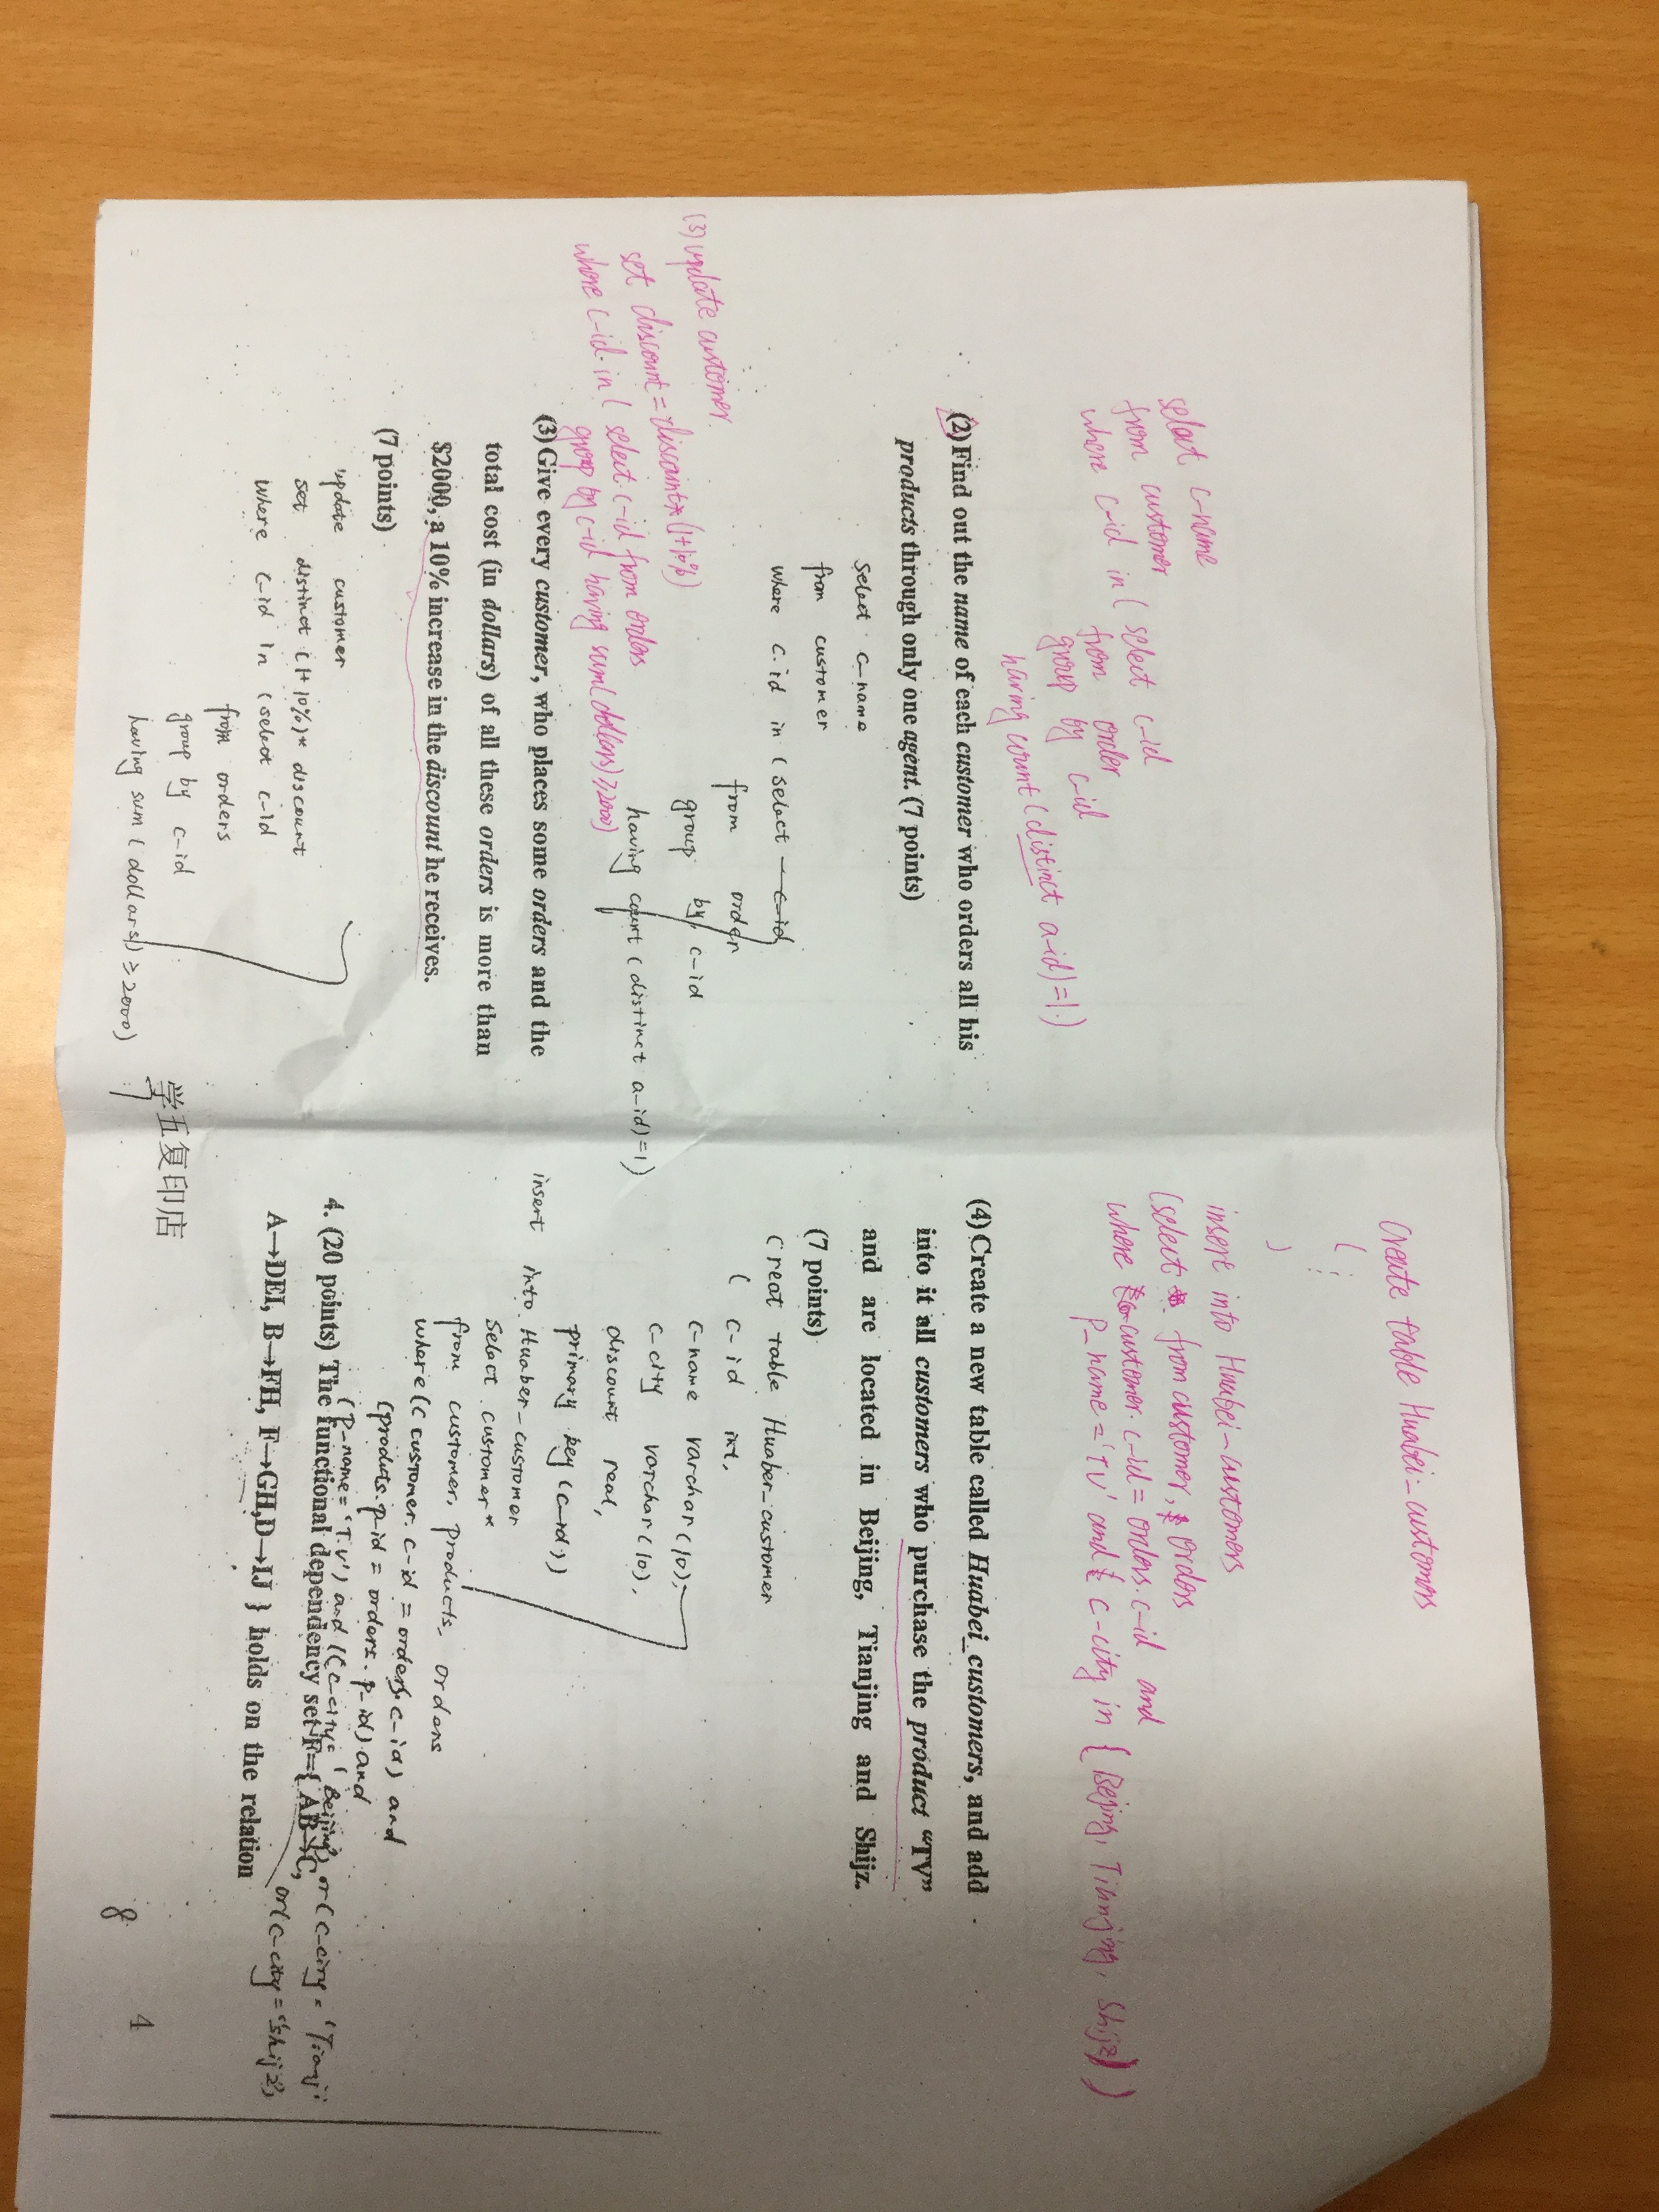 select c-name
from customer
where c-id in ( select c-id
from order
group by c-id
having count (distinct a-id)=1.)
(2) Find out the name of each customer who orders all his
products through only one agent. (7 points)
Select c-name
from customer
where c.id in ( select c-id
from order
group by c-id
having count ( distinct a-id)=1)
(3) update customer.
set discount = discount*(1+10%)
where c-id in ( select c-id from orders
group by c-id having sum(dollars)≥2000)
(3) Give every customer, who places some orders and the
total cost (in dollars) of all these orders is more than
$2000, a 10% increase in the discount he receives.
(7 points)
update customer
set distinct (1+10%)* discount
where c-id in (select c-id
from orders
group by c-id
having sum ( dollars) ≥2000)
学五复印店
7
Create table Huabei_customers
( :
:
)
insert into Huabei-customers
(select from customer, orders
where customer. c-id = orders. c-id and
p_name ='TV' and c-city in { Beijing, Tianjing, Shijz} )
(4) Create a new table called Huabei_customers, and add
into it all customers who purchase the product “TV”
and are located in Beijing, Tianjing and Shijz.
(7 points)
Creat table Huaber_customer
( c-id int,
c-name varchar(10),
c-city varchar(10),
discount real,
primary key (c-id))
insert into Huaber-customer
select customer*
from customer, products, orders
where (( customer. c-id = orders. c-id) and
(products.p-id = orders. p_id) and
(p_name= 'T.V') and ((c-city= 'Beijing') or ( c-city = 'Tianji
or( c-city = 'shijz')
4. (20 points) The functional dependency set F={ AB→C,
A→DEI, B→FH, F→GH,D→IJ } holds on the relation
8
4